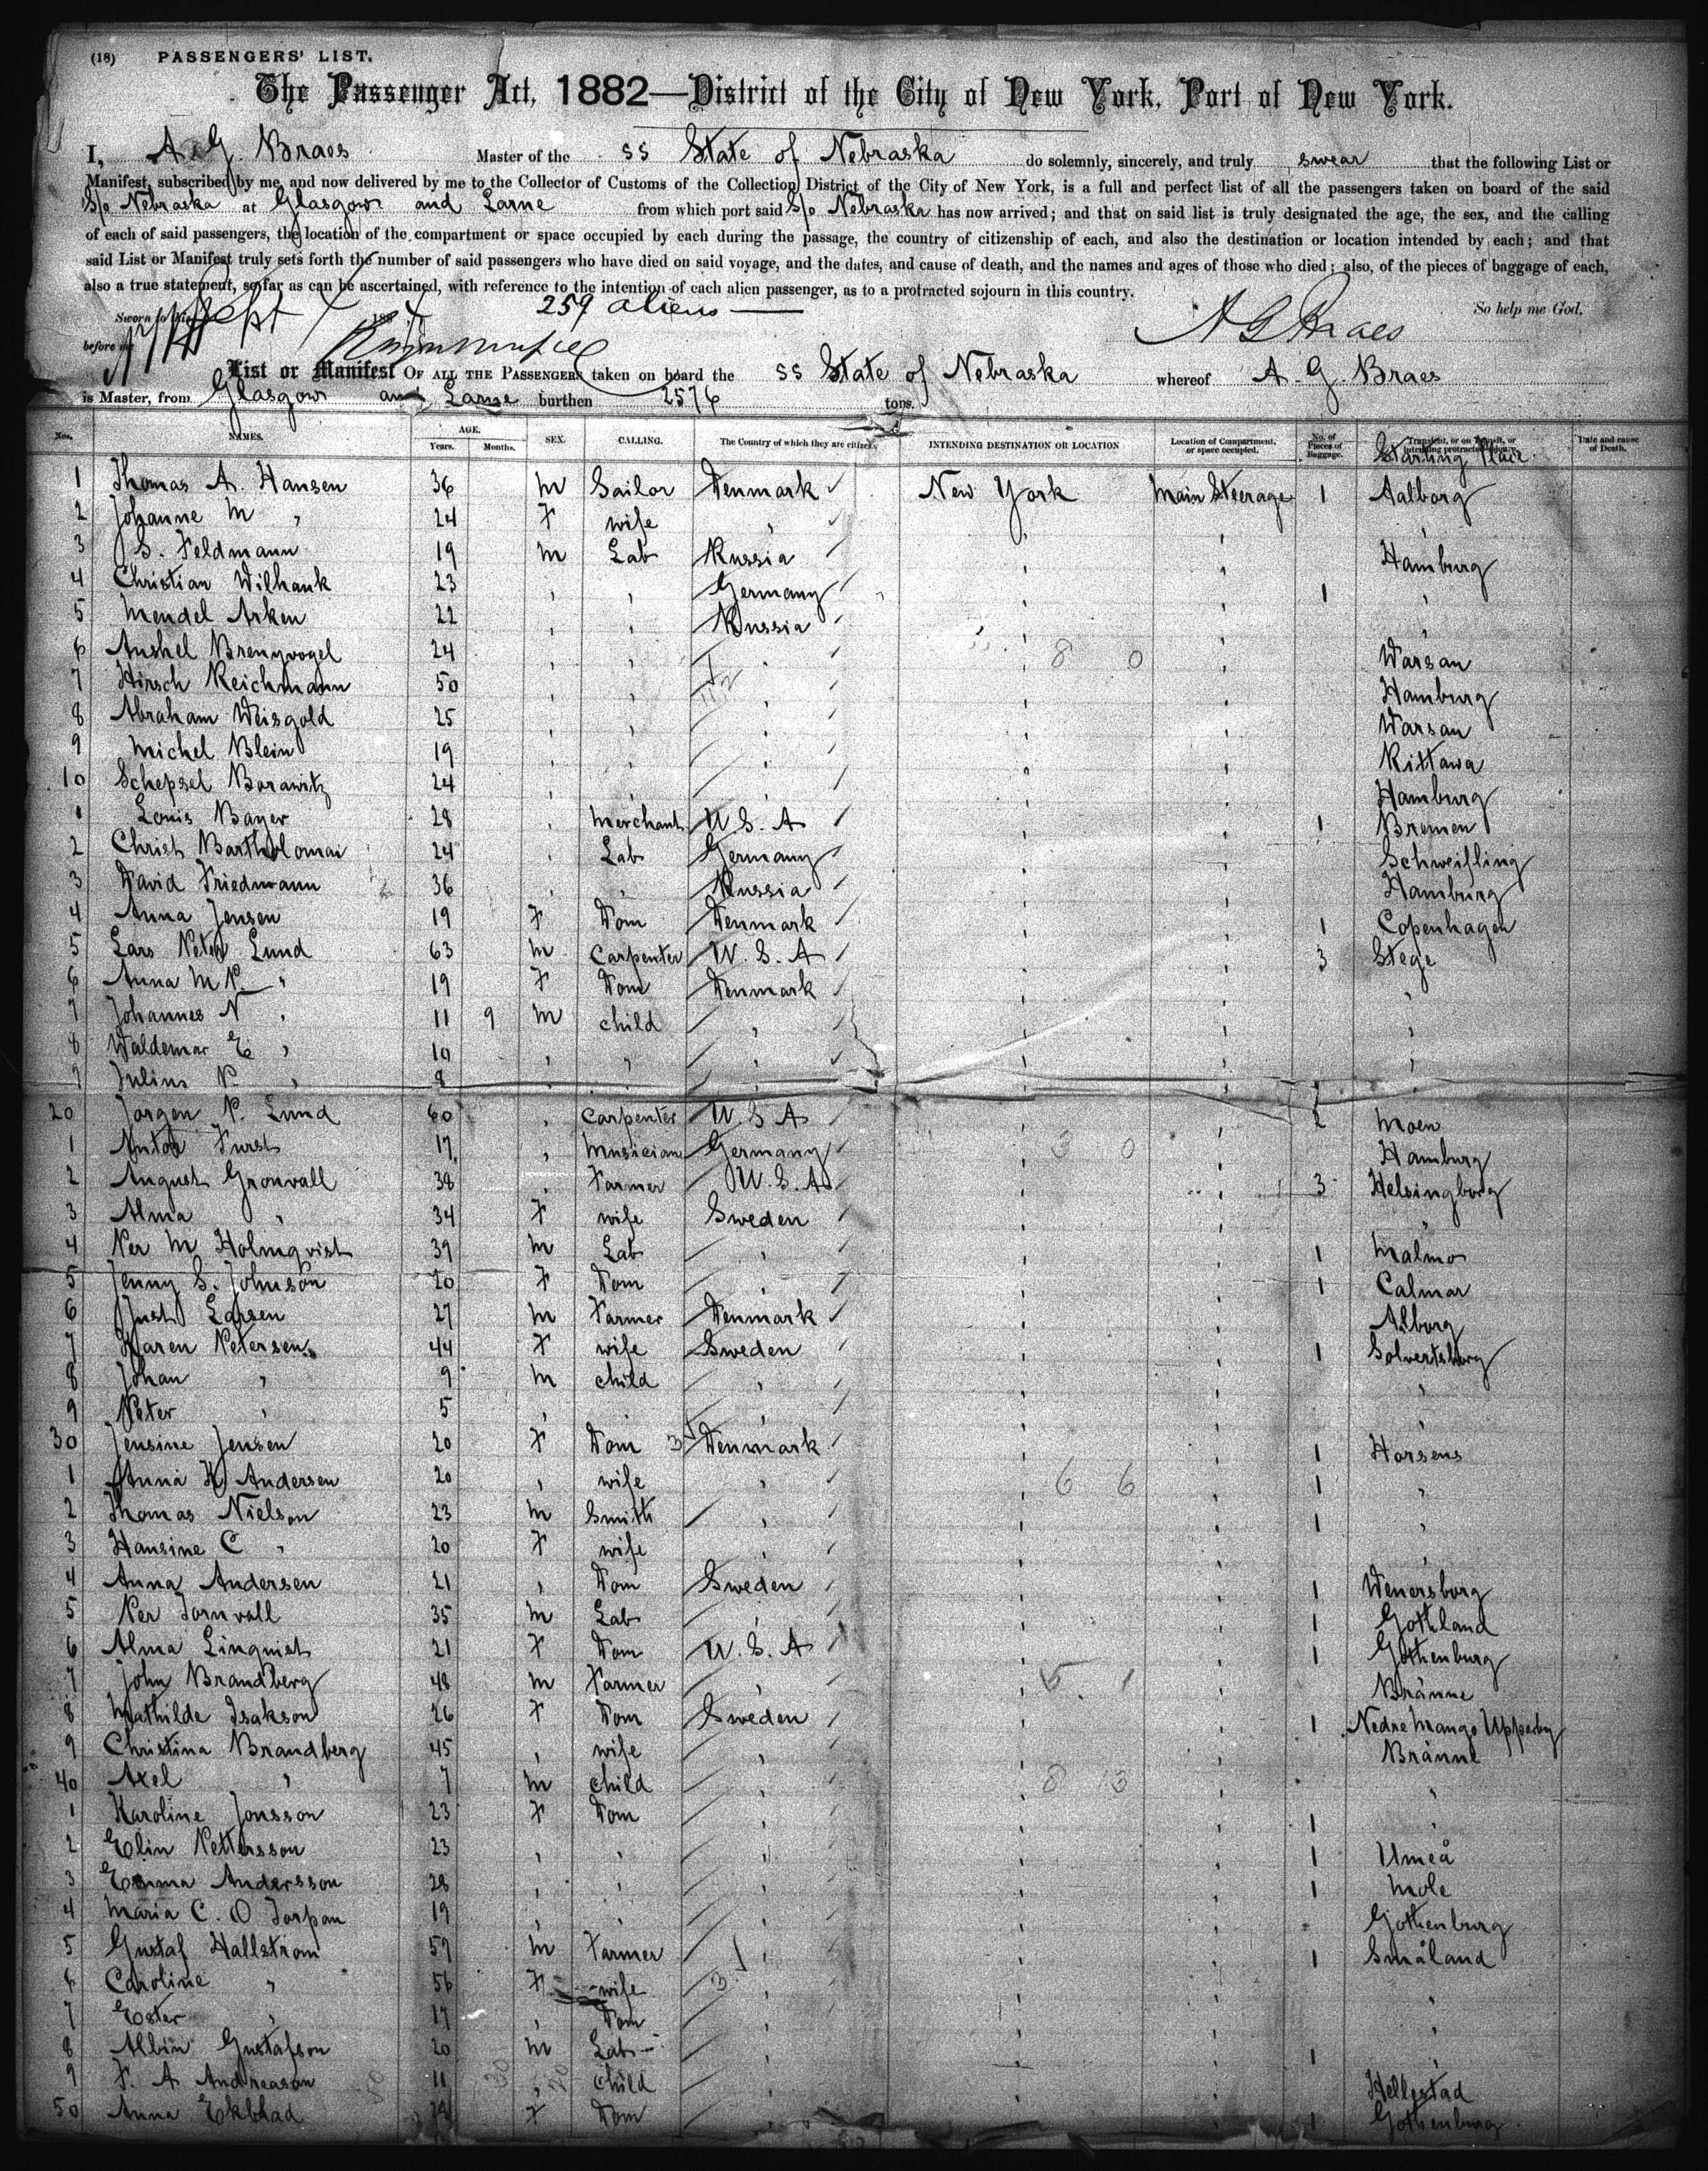 (18) PASSENGERS' LIST.
The Passenger Act, 1882—District of the City of New York, Port of New York.
I, A. G. Braes Master of the SS State of Nebraska do solemnly, sincerely, and truly swear that the following List or
Manifest, subscribed by me, and now delivered by me to the Collector of Customs of the Collection District of the City of New York, is a full and perfect list of all the passengers taken on board of the said
S/o Nebraska at Glasgow and Larne from which port said S/o Nebraska has now arrived; and that on said list is truly designated the age, the sex, and the calling
of each of said passengers, the location of the compartment or space occupied by each during the passage, the country of citizenship of each, and also the destination or location intended by each; and that
said List or Manifest truly sets forth the number of said passengers who have died on said voyage, and the dates, and cause of death, and the names and ages of those who died; also, of the pieces of baggage of each,
also a true statement, so far as can be ascertained, with reference to the intention of each alien passenger, as to a protracted sojourn in this country.
Sworn to this Sept 188 259 aliens — A G Braes So help me God.
before me
List or Manifest OF ALL THE PASSENGERS taken on board the SS State of Nebraska whereof A. G. Braes
is Master, from Glasgow and Larne burthen 2576 tons.
Nos. NAMES. AGE. Years. Months. SEX. CALLING. The Country of which they are citizens. INTENDING DESTINATION OR LOCATION Location of Compartment, or space occupied. No. of Pieces of Baggage. Transient, or on Transit, or intending protracted sojourn. Starting Place Date and cause of Death.
1 Thomas A. Hansen 36 M Sailor Denmark New York Main Steerage 1 Aalborg
2 Johanne M " 24 F wife " " " "
3 S. Feldmann 19 M Lab Russia " " Hamburg
4 Christian Wilhank 23 " " Germany " " 1 "
5 Mendel Arken 22 " " Russia " " "
6 Anshel Brengvogel 24 " " " " 8 0 " Warsaw
7 Hirsch Reichmann 50 " " " " " Hamburg
8 Abraham Weisgold 25 " " " " " Warsaw
9 Michel Blein 19 " " " " " Kittawa
10 Schepsel Borawitz 24 " " " " " Hamburg
1 Louis Bayer 28 " Merchant U.S.A " " 1 Bremen
2 Christ Bartholomai 24 " Lab Germany " " Schweifling
3 David Friedmann 36 " " Russia " " Hamburg
4 Anna Jensen 19 F Dom Denmark " " 1 Copenhagen
5 Lars Peter Lund 63 M Carpenter U.S.A " " 3 Stege
6 Anna M P. " 19 F Dom Denmark " " "
7 Johannes N " 11 9 M child " " " "
8 Waldemar E " 10 " " " " " "
9 Julius P. " 8 " " " "
20 Jorgen P. Lund 60 " Carpenter U.S.A " " 2 Moen
1 Anton Furst 17 " Musician Germany " 3 0 " Hamburg
2 August Gronvall 38 " Farmer U.S.A " " 3 Helsingborg
3 Alma " 34 F wife Sweden " " "
4 Per M Holmqvist 39 M Lab " " " 1 Malmo
5 Jenny S. Johnson 20 F Dom " " " 1 Calmar
6 Just Larsen 27 M Farmer Denmark " " Alborg
7 Karen Petersen 44 F wife Sweden " " 1 Solvertsborg
8 Johan " 9 M child " " " "
9 Peter " 5 " " " " " "
30 Jensine Jensen 20 F Dom Denmark " " 1 Horsens
1 Anna K Andersen 20 " wife " " 6 6 " 1 "
2 Thomas Nielson 23 M Smith " " " 1 "
3 Hansine C " 20 F wife " " " "
4 Anna Andersen 21 " Dom Sweden " " 1 Wenersborg
5 Per Tornvall 35 M Lab " " " 1 Gothland
6 Alma Linqvist 21 F Dom U.S.A " " 1 Gothenburg
7 John Brandberg 48 M Farmer " " 5 1 " Bränne
8 Mathilde Isakson 26 F Dom Sweden " " 1 Nedre Mango Upperby
9 Christina Brandberg 45 " wife " " " Bränne
40 Axel " 7 M child " " 8 13 " "
1 Karoline Jonsson 23 F Dom " " " 1 "
2 Elin Pettersson 23 " " " " " 1 Umeå
3 Emma Andersson 28 " " " " " 1 Mole
4 Maria C. O Torpan 19 " " " " " Gothenburg
5 Gustaf Hallstrom 59 M Farmer " " " 1 Småland
6 Caroline " 56 F wife " " " "
7 Ester " 17 " Dom " " " "
8 Albin Gustafson 20 M Lab " " " 1 "
9 F. A. Andreason 11 " child " " " Hellestad
50 Anna Ekblad 24 F Dom " " " 1 Gothenburg